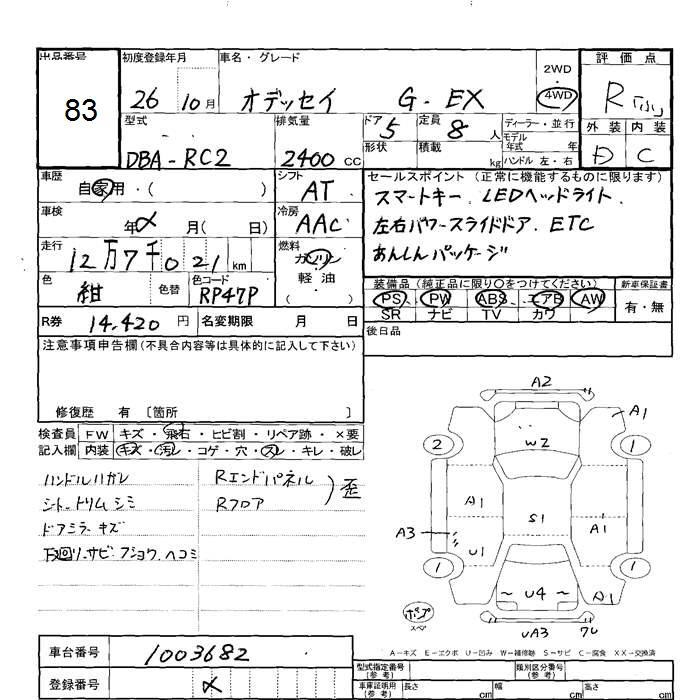 出品番号
83
初度登録年月
26 10月
車名・グレード
オデッセイ G・EX
2WD
・
4WD
評価点
R「ふ」
外装 内装
D C
型式
DBA-RC2
排気量
2400 cc
ドア 5
定員 8 人
形状
積載 kg
ディーラー・並行
モデル
年式 年
ハンドル 左・右
車歴
自家用・( )
シフト
AT
車検
年 月( 日)
冷房
AAC
走行
12万7千021 km
燃料
ガソリン
軽油
( )
色
紺
色替
色コード
RP47P
R券 14,420 円
名変期限 月 日
セールスポイント(正常に機能するものに限ります)
スマートキー.LEDヘッドライト.
左右パワースライドドア.ETC
あんしんパッケージ
装備品(純正品に限り○をつけてください)
新車保証書
PS PW ABS エアB AW
SR ナビ TV カワ
有・無
後日品
注意事項申告欄(不具合内容等は具体的に記入して下さい)
修復歴 有 〔箇所 〕
検査員
記入欄
FW キズ・飛石・ヒビ割・リペア跡・×要
内装 キズ・汚レ・コゲ・穴・スレ・キレ・破レ
ハンドルハガレ
シート.トリムシミ
ドアミラーキズ
下廻リ.サビ.フショク.ヘコミ
Rエンドパネル
Rフロア
)歪
A2
A1
2
W2
1
A1
S1
A1
A3
U1
1
1
~U4~
A1
ポプ
スペア
UA3
ワレ
A-キズ E-エクボ U-凹み W-補修跡 S-サビ C-腐食 XX-交換済
車台番号
1003682
登録番号
メ
型式指定番号
(参考)
類別区分番号
(参考)
車庫証明用
(参考)
長さ cm
幅 cm
高さ cm